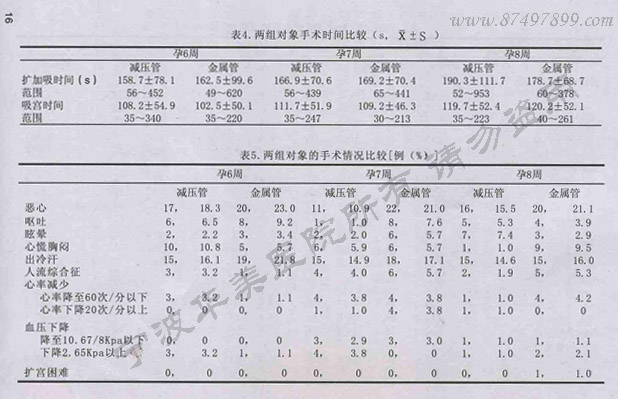 www.87497899.com
16
表4.两组对象手术时间比较(s, X̄±S)
孕6周 孕7周 孕8周
减压管 金属管 减压管 金属管 减压管 金属管
扩加吸时间(s) 158.7±78.1 162.5±99.6 166.9±70.6 169.2±70.4 190.3±111.7 178.7±68.7
范围 56~452 49~620 56~439 65~441 52~953 60~378
吸宫时间 108.2±54.9 102.5±50.1 111.7±51.9 109.2±46.3 119.7±52.4 120.2±52.1
范围 35~340 35~220 35~247 30~213 35~223 40~261
表5.两组对象的手术情况比较[例(%)]
孕6周 孕7周 孕8周
减压管 金属管 减压管 金属管 减压管 金属管
恶心 17, 18.3 20, 23.0 11, 10.9 22, 21.0 16, 15.5 20, 21.1
呕吐 6, 6.5 8, 9.2 1, 1.0 8, 7.6 5, 5.3 4, 3.9
眩晕 2, 2.2 3, 3.4 2, 2.0 6, 5.7 7, 7.4 3, 2.9
心慌胸闷 10, 10.8 5, 5.7 6, 5.9 6, 5.7 1, 1.0 9, 9.5
出冷汗 15, 16.1 19, 21.8 15, 14.9 18, 17.1 15, 14.6 15, 16.0
人流综合征 3, 3.2 1, 1.1 4, 4.0 6, 5.7 2, 1.9 5, 5.3
心率减少
心率降至60次/分以下 3, 3.2 1, 1.1 4, 3.8 4, 3.8 1, 1.0 4, 4.2
心率下降20次/分以上 0 0, 0 1, 1.0 4, 3.8 1, 1.0 0, 0
血压下降
降至10.67/8Kpa以下 0, 0 0, 0 3, 2.9 3, 3.0 1, 1.0 1, 1.1
下降2.65Kpa以上 3, 3.2 1, 1.1 4, 3.8 0, 0 1, 1.0 2, 2.1
扩宫困难 0, 0 0, 0 0, 0 0, 0 0, 0 1, 1.0
宁波华美医院所有 请勿盗